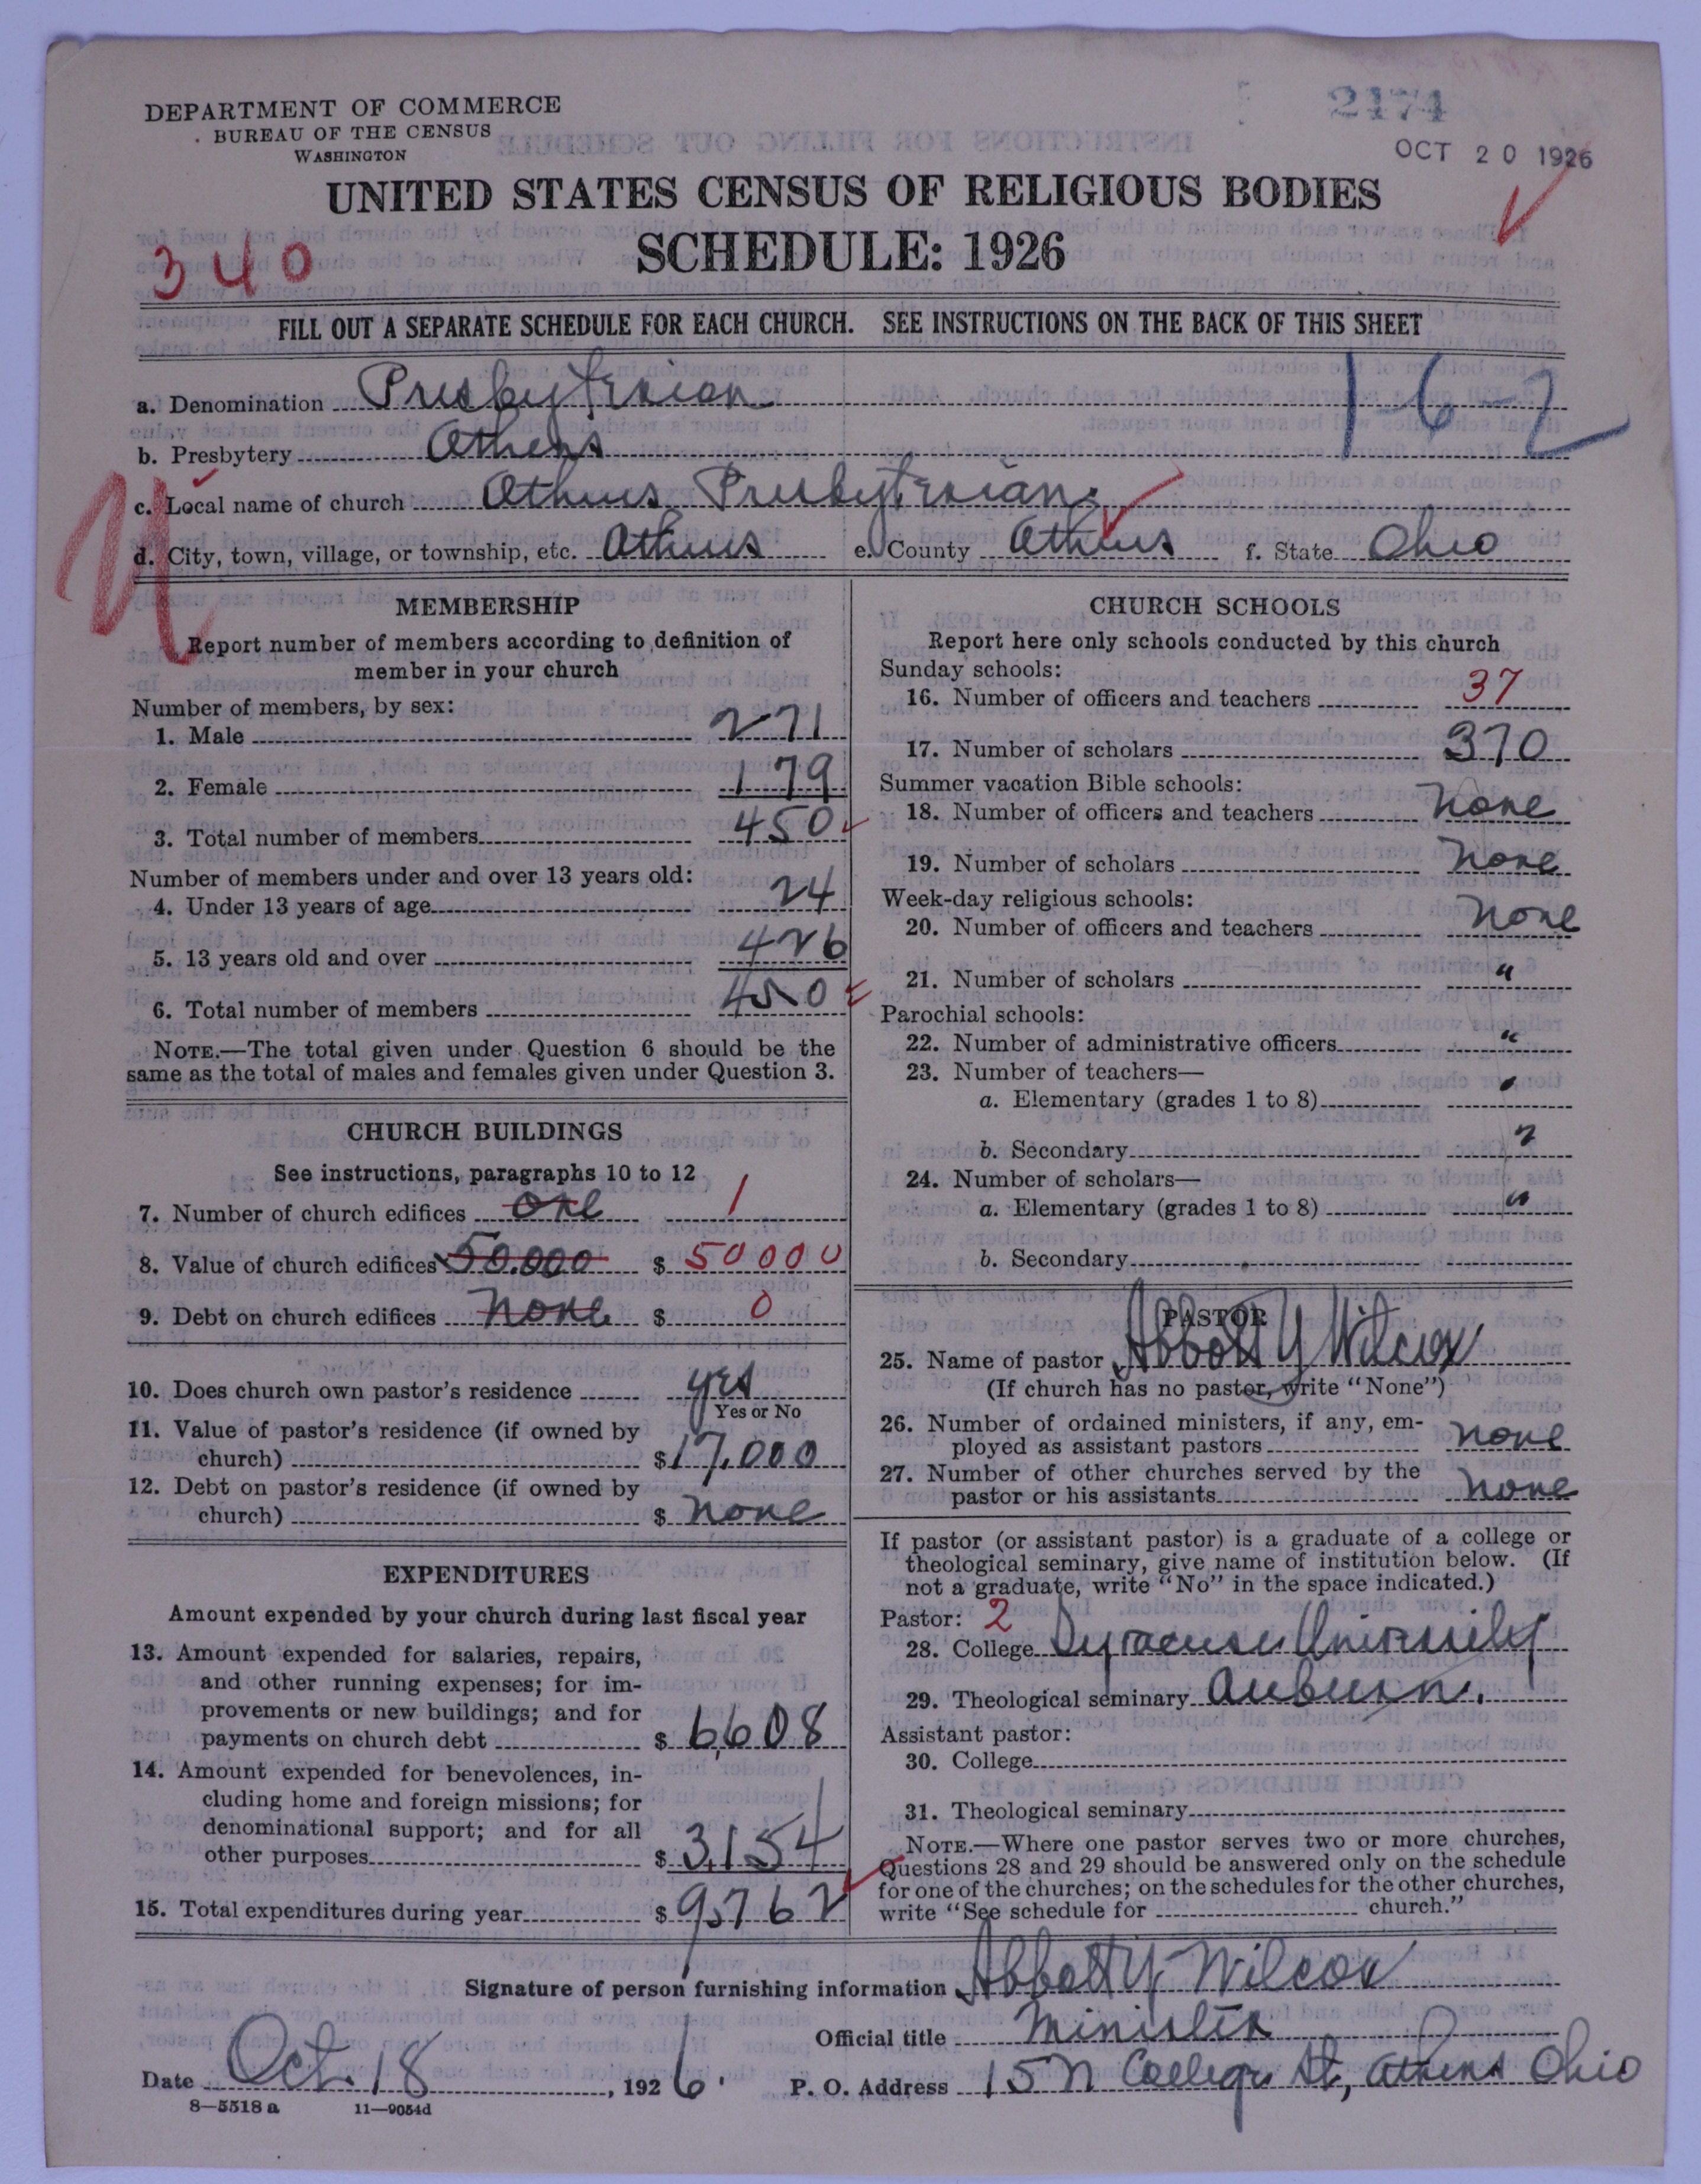 DEPARTMENT OF COMMERCE
BUREAU OF THE CENSUS
WASHINGTON
2174
OCT 20 1926
UNITED STATES CENSUS OF RELIGIOUS BODIES
SCHEDULE: 1926
340
FILL OUT A SEPARATE SCHEDULE FOR EACH CHURCH. SEE INSTRUCTIONS ON THE BACK OF THIS SHEET
1-6-2
a. Denomination Presbyterian
b. Presbytery Athens
c. Local name of church Athens Presbyterian
d. City, town, village, or township, etc. Athens e. County Athens f. State Ohio
MEMBERSHIP
Report number of members according to definition of
member in your church
Number of members, by sex:
1. Male 271
2. Female 179
3. Total number of members 450
Number of members under and over 13 years old:
4. Under 13 years of age 24
5. 13 years old and over 426
6. Total number of members 450
NOTE.—The total given under Question 6 should be the
same as the total of males and females given under Question 3.
CHURCH BUILDINGS
See instructions, paragraphs 10 to 12
7. Number of church edifices one 1
8. Value of church edifices 50.000 $ 50000
9. Debt on church edifices none $ 0
10. Does church own pastor's residence yes
Yes or No
11. Value of pastor's residence (if owned by
church) $ 17,000
12. Debt on pastor's residence (if owned by
church) $ none
EXPENDITURES
Amount expended by your church during last fiscal year
13. Amount expended for salaries, repairs,
and other running expenses; for im-
provements or new buildings; and for
payments on church debt $ 6,608
14. Amount expended for benevolences, in-
cluding home and foreign missions; for
denominational support; and for all
other purposes $ 3,154
15. Total expenditures during year $ 9,762
CHURCH SCHOOLS
Report here only schools conducted by this church
Sunday schools:
16. Number of officers and teachers 37
17. Number of scholars 370
Summer vacation Bible schools:
18. Number of officers and teachers none
19. Number of scholars none
Week-day religious schools:
20. Number of officers and teachers none
21. Number of scholars "
Parochial schools:
22. Number of administrative officers "
23. Number of teachers—
a. Elementary (grades 1 to 8) "
b. Secondary "
24. Number of scholars—
a. Elementary (grades 1 to 8) "
b. Secondary
PASTOR
25. Name of pastor Abbott Y Wilcox
(If church has no pastor, write "None")
26. Number of ordained ministers, if any, em-
ployed as assistant pastors none
27. Number of other churches served by the
pastor or his assistants none
If pastor (or assistant pastor) is a graduate of a college or
theological seminary, give name of institution below. (If
not a graduate, write "No" in the space indicated.)
Pastor: 2
28. College Syracuse University
29. Theological seminary Auburn.
Assistant pastor:
30. College
31. Theological seminary
NOTE.—Where one pastor serves two or more churches,
Questions 28 and 29 should be answered only on the schedule
for one of the churches; on the schedules for the other churches,
write "See schedule for church."
Signature of person furnishing information Abbott Y. Wilcox
Official title Minister
Date Oct. 18, 1926. P. O. Address 15 N College St, Athens Ohio
8—5518 a 11—9054d